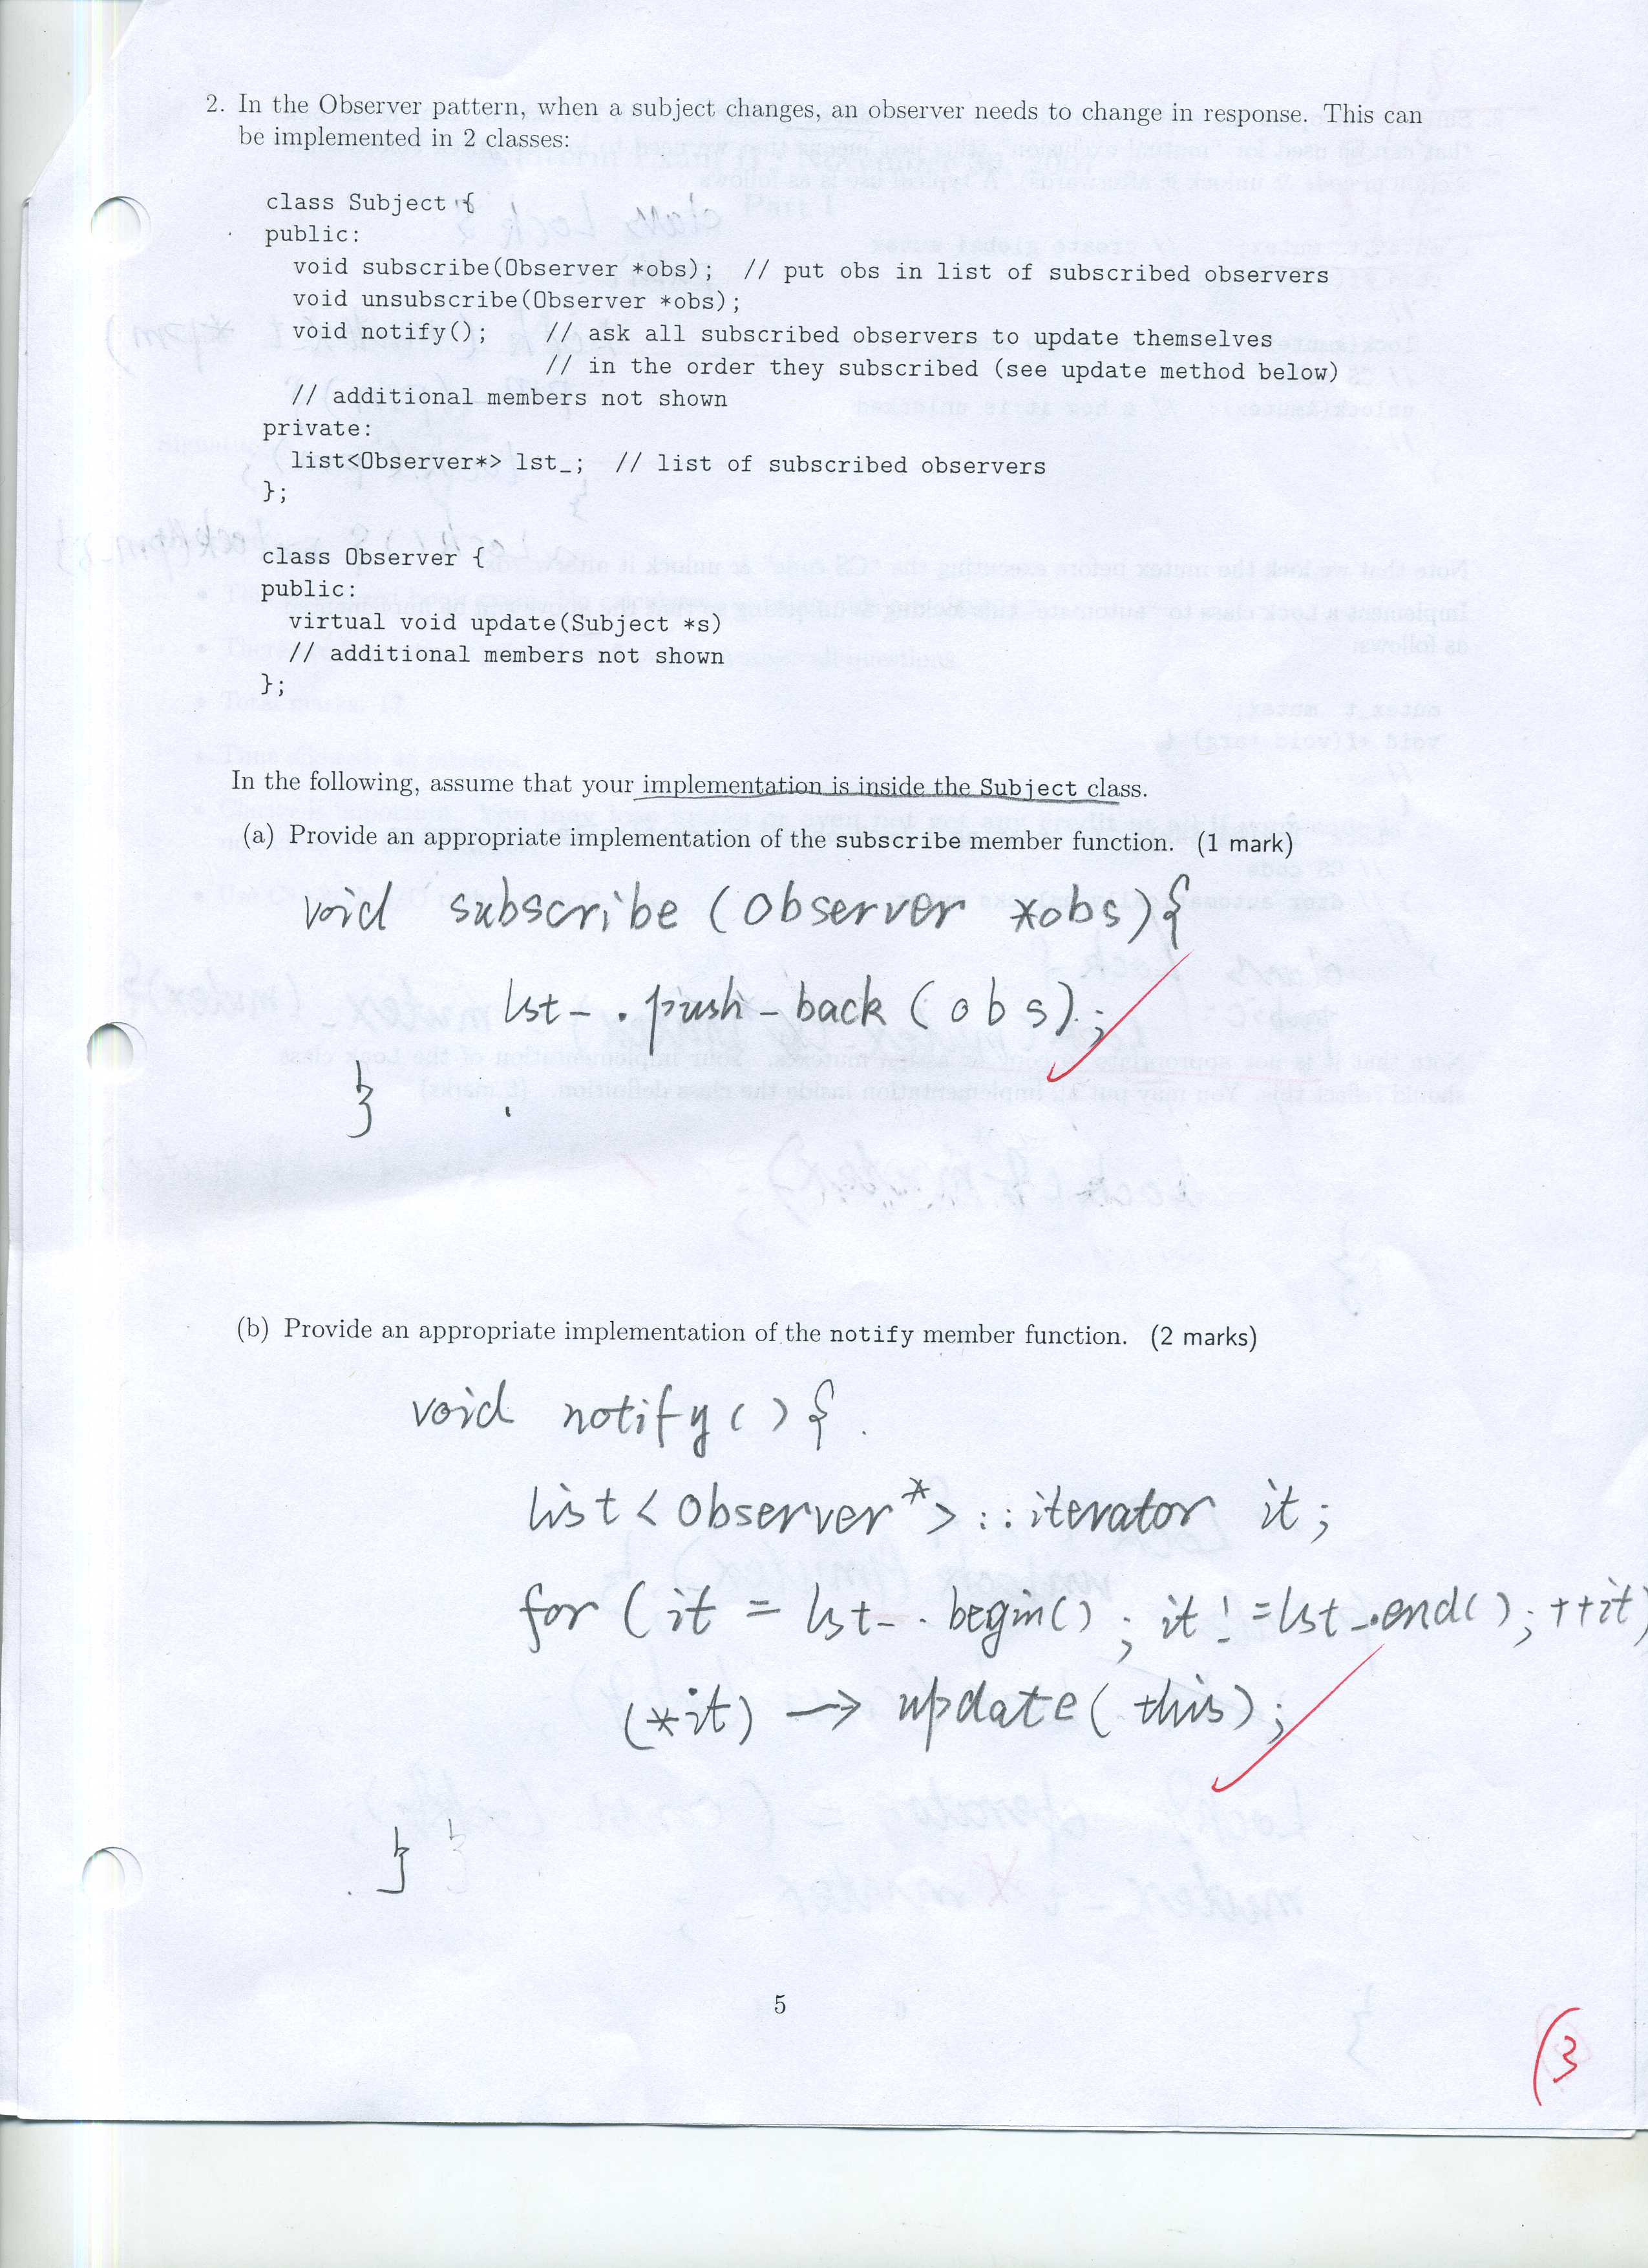 2. In the Observer pattern, when a subject changes, an observer needs to change in response. This can
be implemented in 2 classes:
class Subject {
public:
void subscribe(Observer *obs); // put obs in list of subscribed observers
void unsubscribe(Observer *obs);
void notify(); // ask all subscribed observers to update themselves
// in the order they subscribed (see update method below)
// additional members not shown
private:
list<Observer*> lst_; // list of subscribed observers
};
class Observer {
public:
virtual void update(Subject *s)
// additional members not shown
};
In the following, assume that your implementation is inside the Subject class.
(a) Provide an appropriate implementation of the subscribe member function. (1 mark)
void subscribe (Observer *obs){
lst_.push_back(obs);
}
(b) Provide an appropriate implementation of the notify member function. (2 marks)
void notify(){
list<Observer*>::iterator it;
for (it = lst_.begin(); it != lst_.end(); ++it)
(*it) -> update(this);
}
5
3